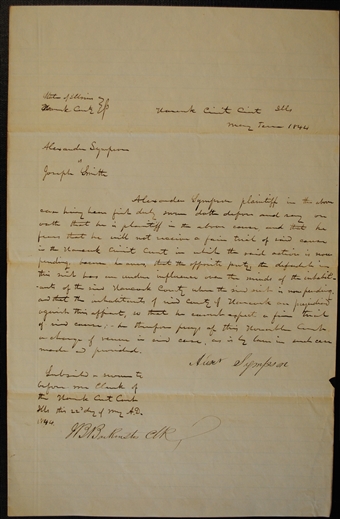 State of Illinois
Hancock County
Hancock Circuit Court Ills
May Term 1844
Alexander Sympson
vs
Joseph Smith
Alexander Sympson plaintiff in the above
cause being here first duly sworn doth depose and say on
oath that he is plaintiff in the above cause and that he
fears that he will not receive a fair trial of said cause
in the Hancock Circuit Court in which the said action is now
pending, because he says that the opposite party the defendant in
this suit has an undue influence over the minds of the inhabit-
ants of the said Hancock County where the said suit is now pending,
and that the inhabitants of said County of Hancock are prejudiced
against this affiant, so that he cannot expect a fair trial
of said cause; he therefore prays of this Honorable Court
a change of venue in said case, as is by law in such cases
made and provided.
Alexr Sympson
Subscribed & sworn to
before me Clerk of
the Hancock Circt Court
Ills this 22d day of May A.D.
1844
Clk